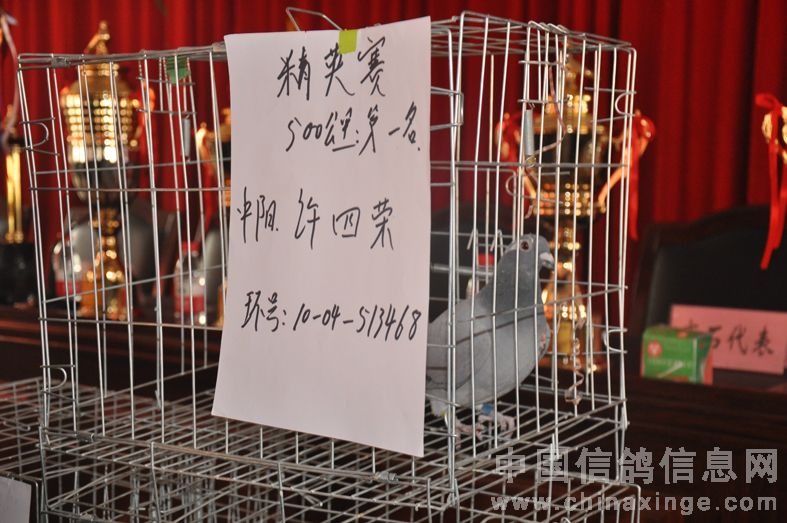 精英赛
500公里:第一名
中阳 许四荣
环号:10-04-513468
方石代表
中国信鸽信息网
www.chinaxinge.com